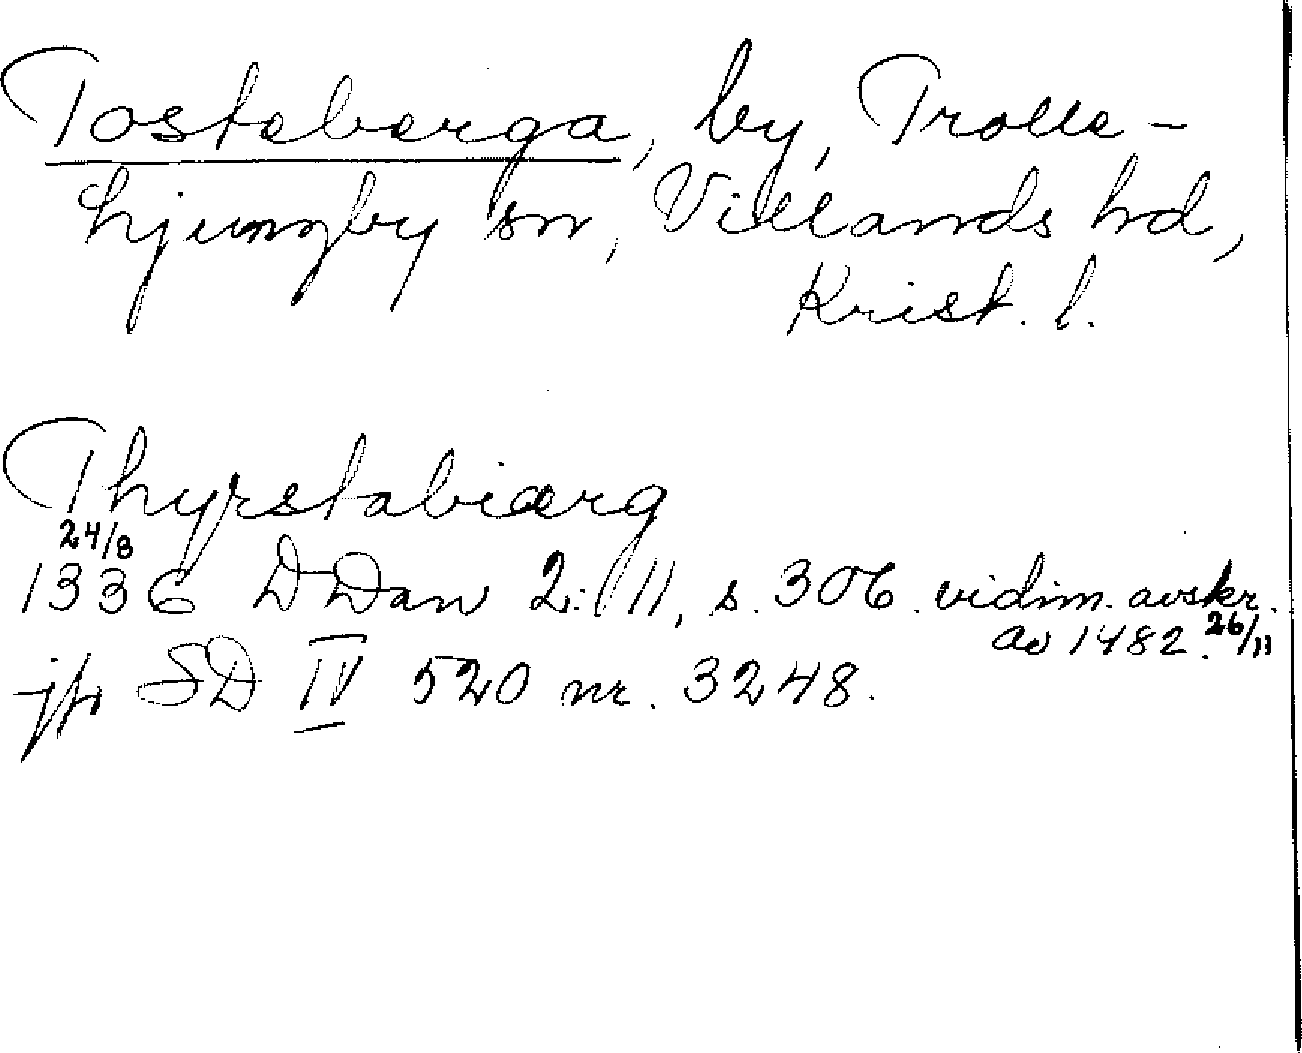 Tosteberga, by, Trolle-
Ljungby sn, Villands hd,
Krist. l.
Thyrstabiærg
24/8
1336 DDan 2:11, s. 306. vidim. avskr.
av 1482. 26/11
jfr SD IV 520 nr. 3248.